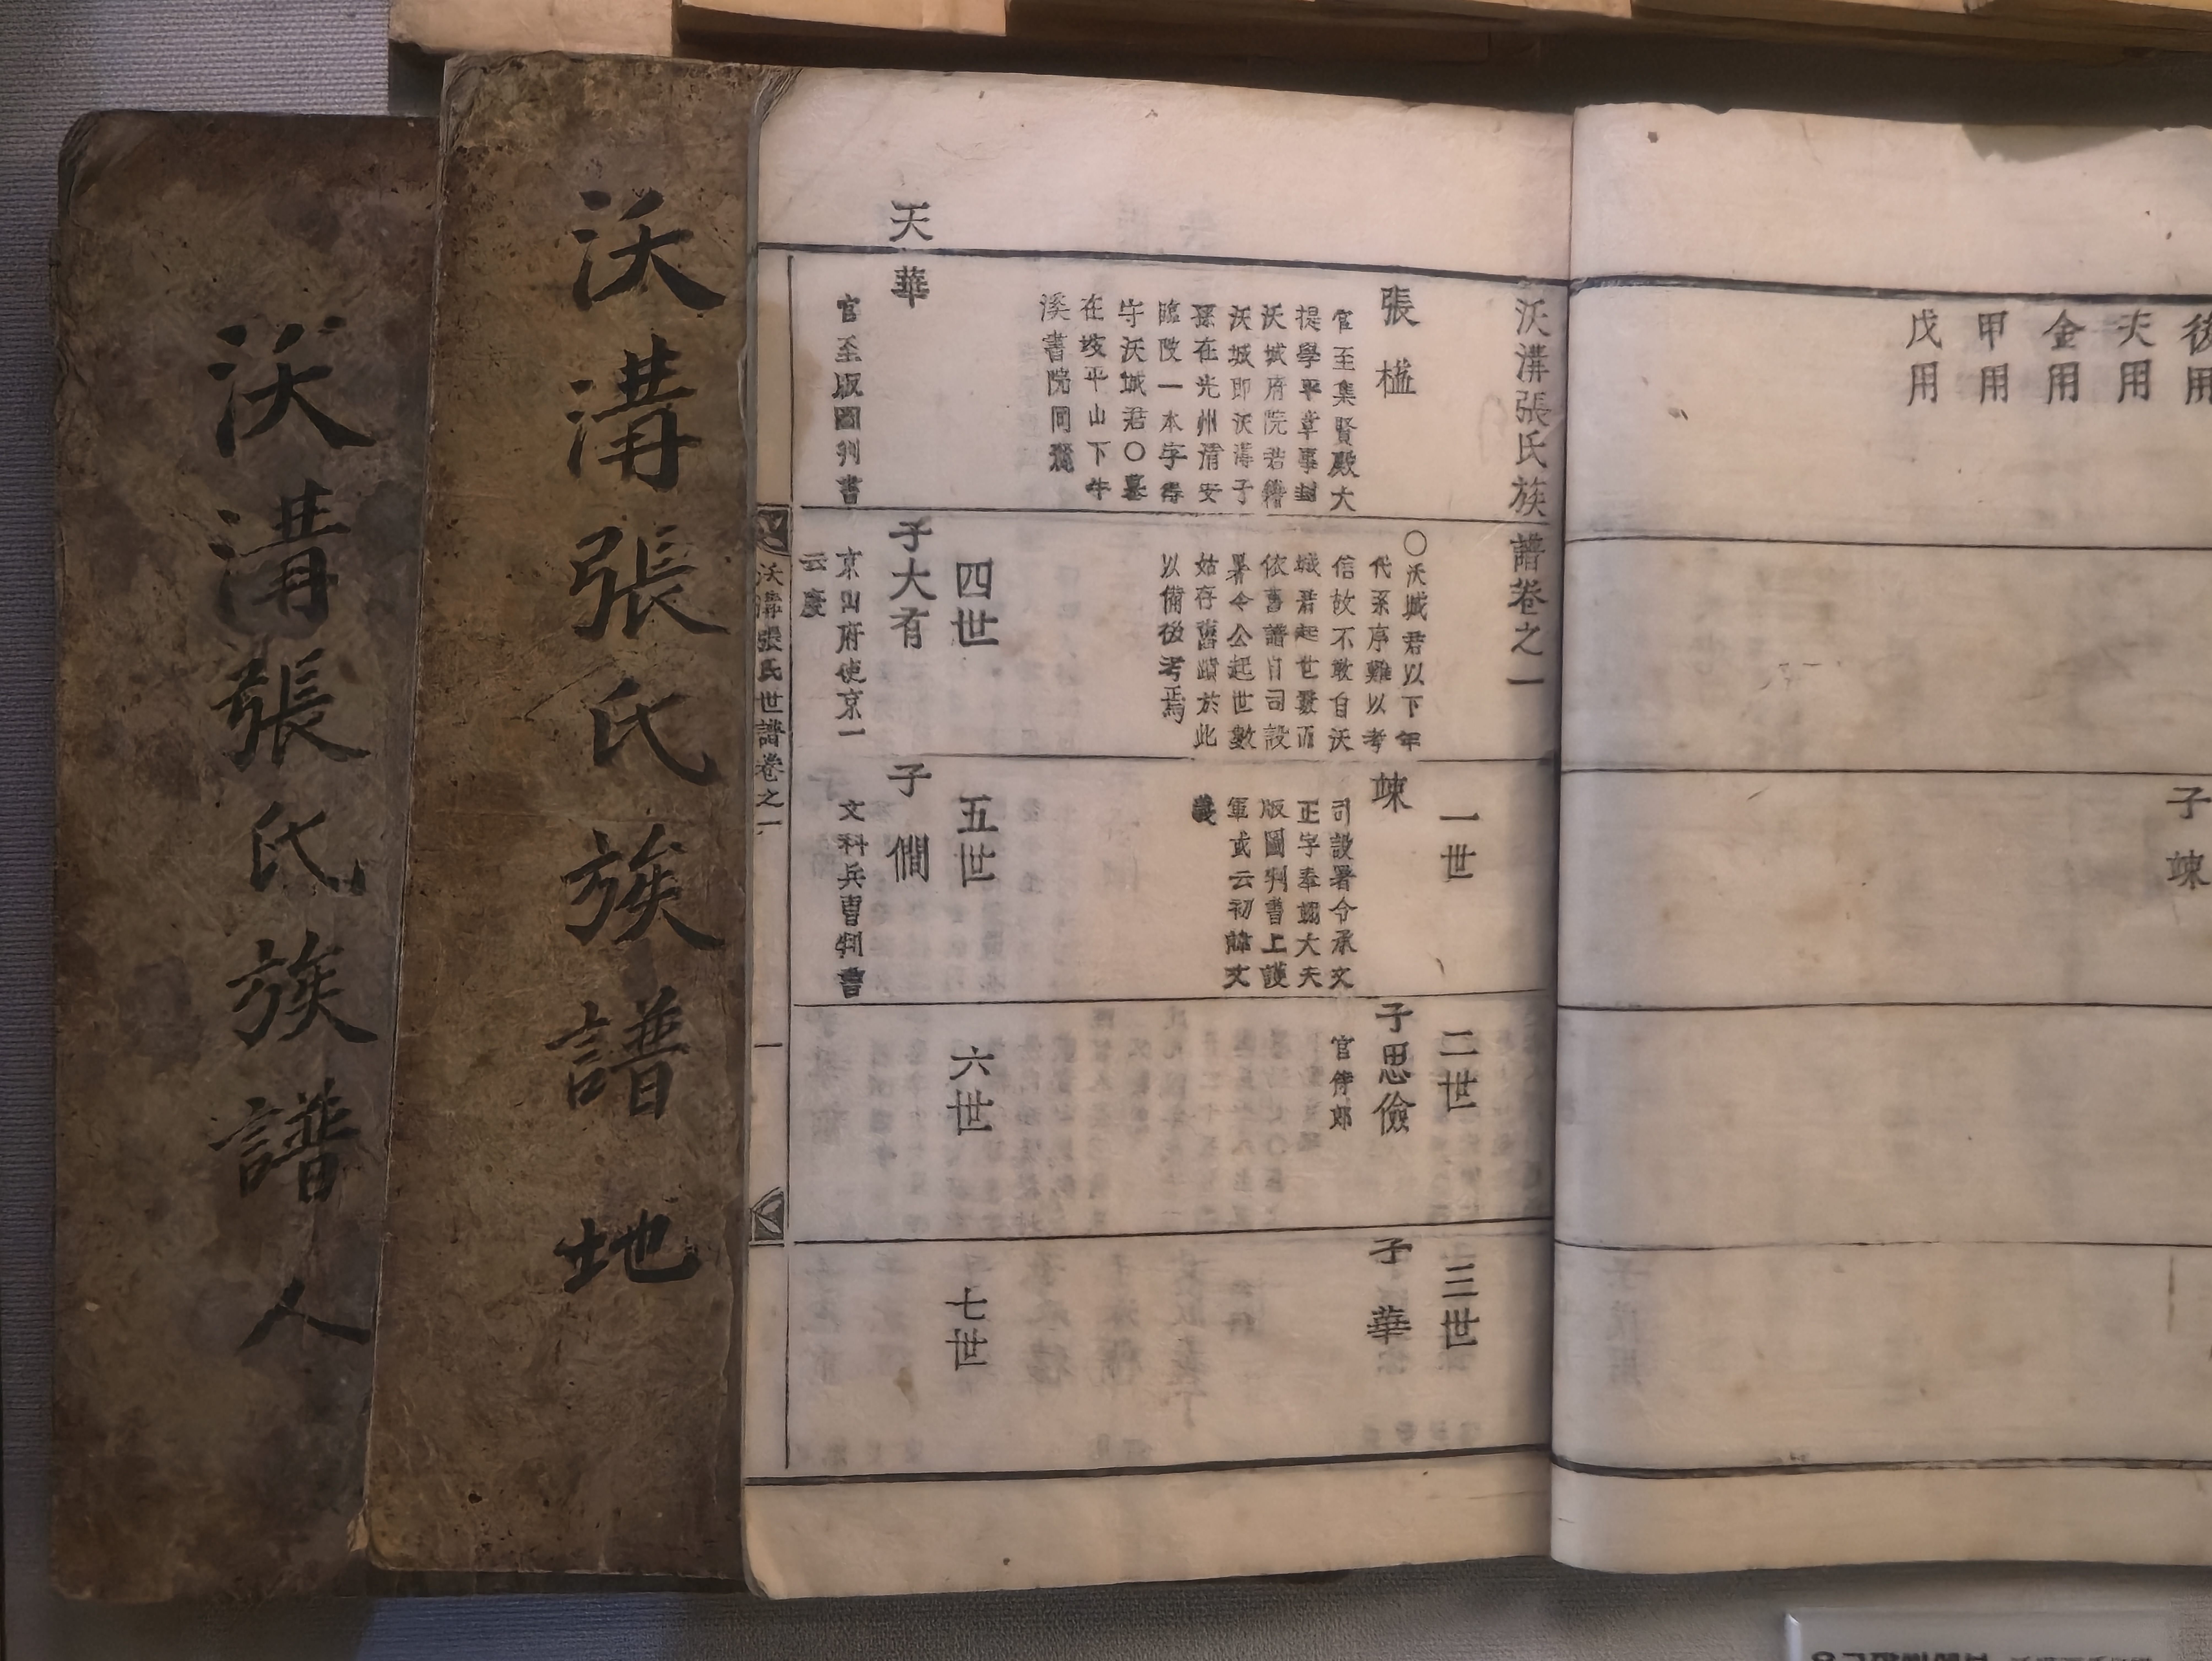 後用
夫用
金用
甲用
戊用
子 竦
沃溝張氏族譜卷之一
張 楹
官至集賢殿大
提學平章事封
沃城府院君籍
沃城即沃溝子
孫在光州清安
臨陂一本字得
守沃城君〇墓
在坡平山下牛
溪書院同麓
〇沃城君以下年
代系序難以考
信故不敢自沃
城君起世數而
依舊譜自司設
署令公起世數
姑存舊蹟於此
以備後考焉
一世
竦
司設署令承文
正字奉翊大夫
版圖判書上護
軍或云初諱文
義
二世
子思儉
官侍郎
三世
子 華
天
華
官至版圖判書
四世
子大有
京山府使京一
云慶
五世
子 僩
文科兵曺判書
六世
七世
沃溝張氏世譜卷之一
一
沃溝張氏族譜 地
沃溝張氏族譜 人